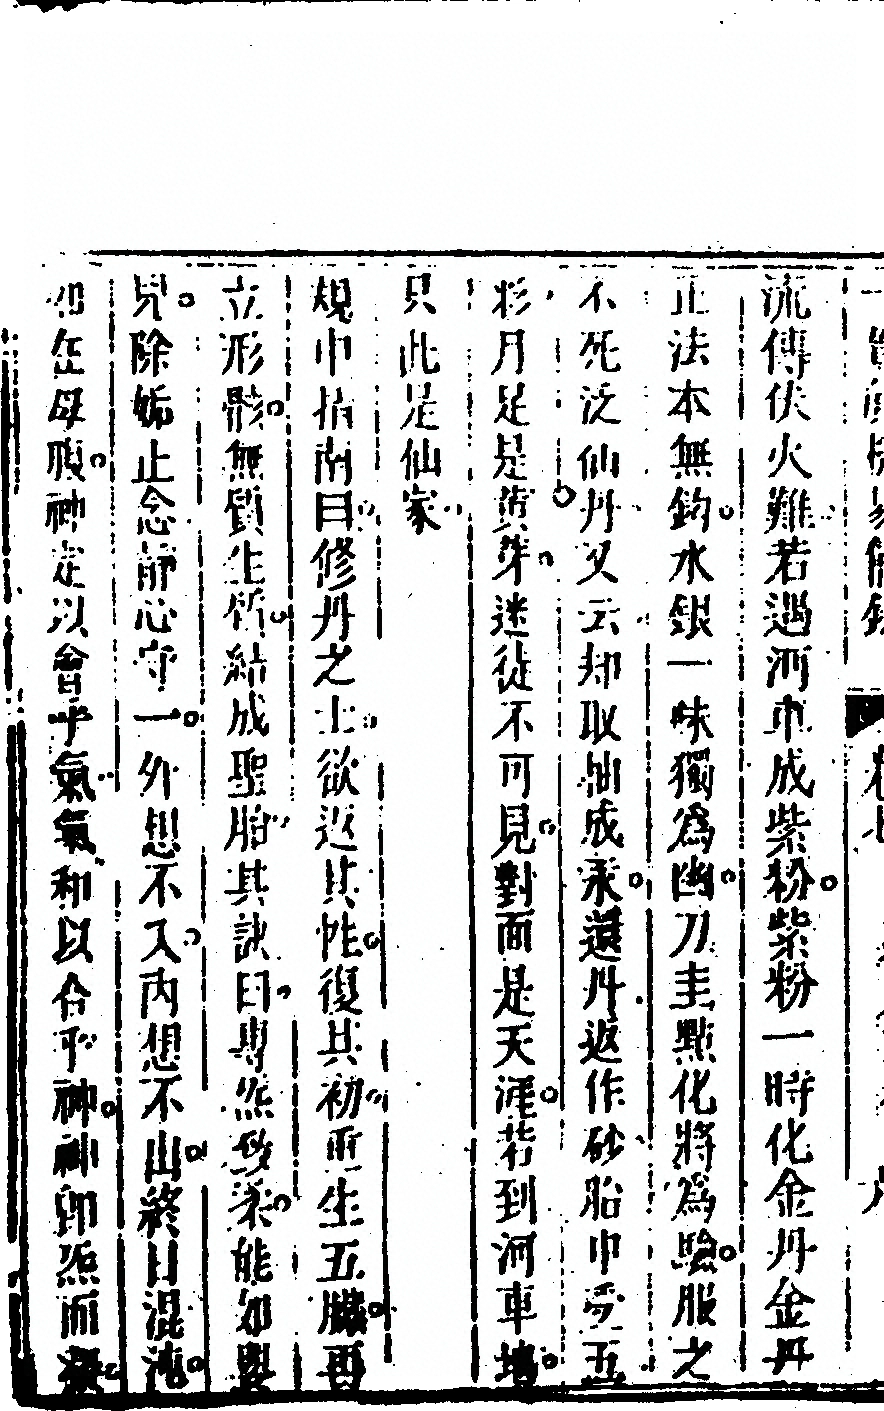 流傳伏火難若遇河車成紫粉紫粉一時化金丹金丹
正法本無鈎水銀一味獨為幽刀圭點化將為驗服之
不死泛仙丹又云却取抽成汞還丹返作砂胎中受五
彩丹足是黃芽迷徒不可見對面是天涯若到河車地
只此是仙家
規中指南曰修丹之士欲返其性復其初重生五臟再
立形骸無質生質結成聖胎其訣曰專炁致柔能如嬰
兒除垢止念靜心守一外想不入內想不出終日混沌
如在母腹神定以會乎氣氣和以合乎神神卽炁而凝